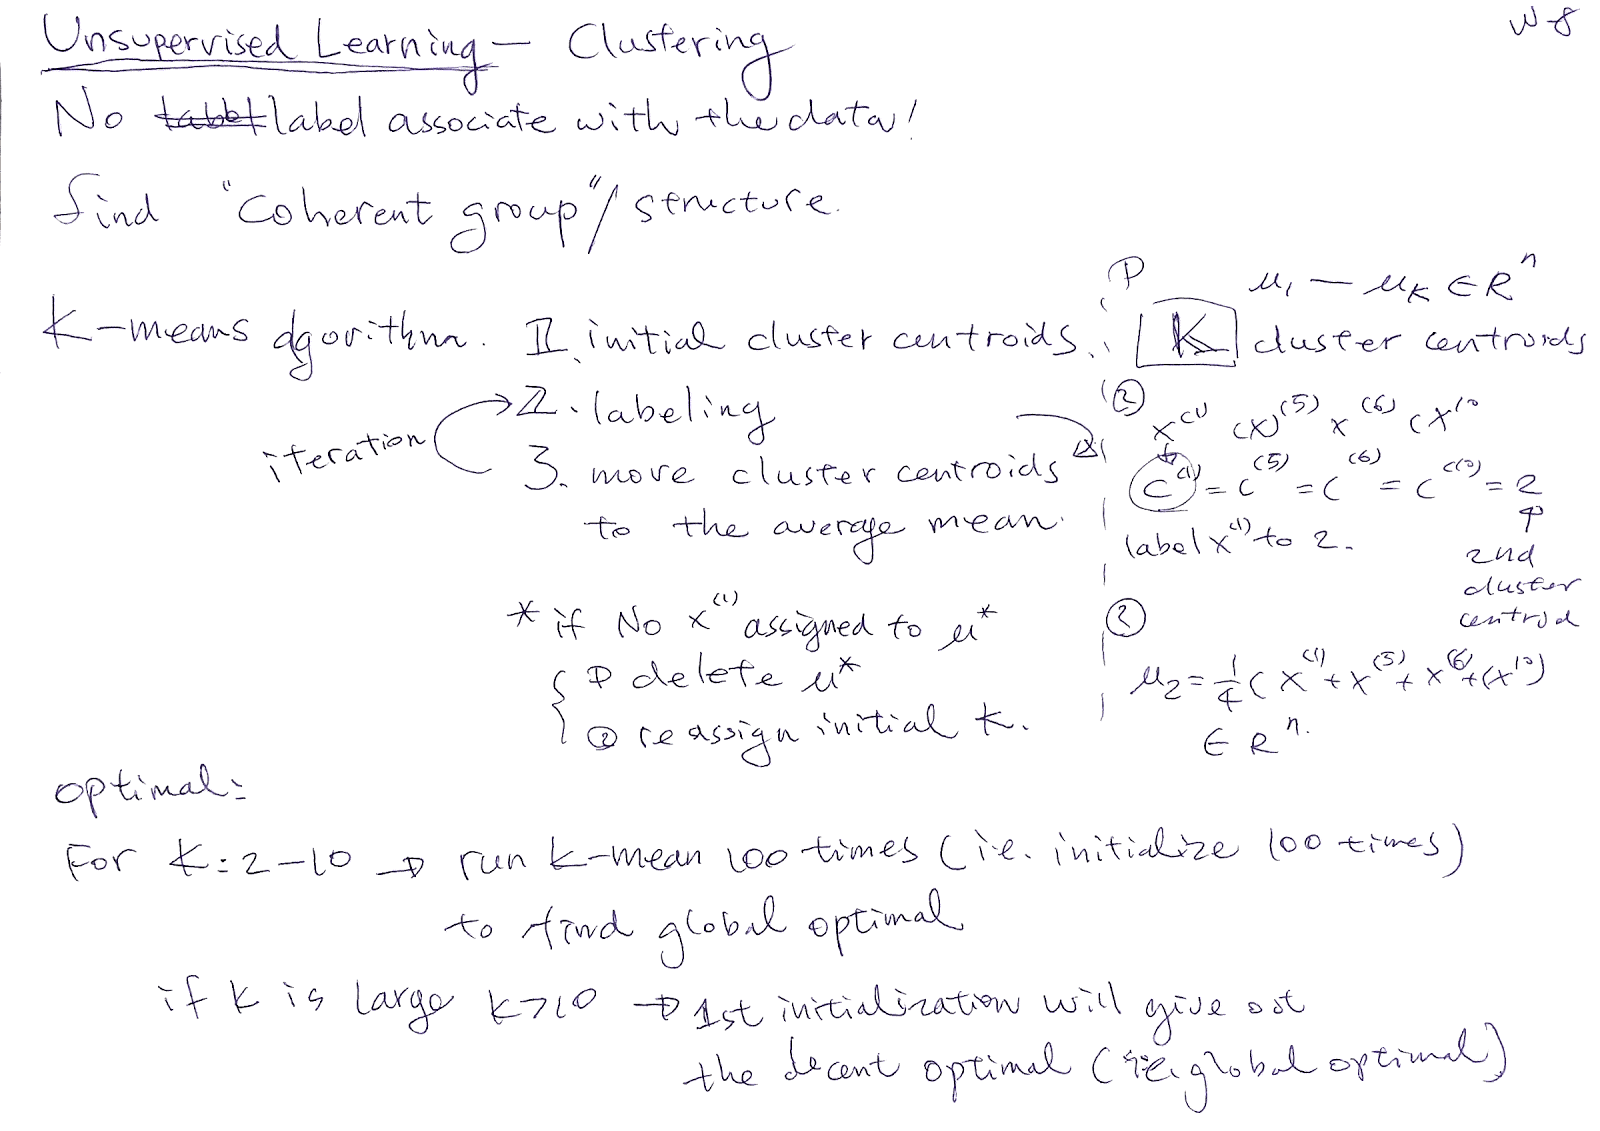 W 8
Unsupervised Learning — Clustering
No label associate with the data!
find "coherent group" / structure.
K-means algorithm. 1. initial cluster centroids.
2. labeling
iteration
3. move cluster centroids
to the average mean.
* if No x⁽¹⁾ assigned to μ*
① delete μ*
② reassign initial K.
①
μ₁ — μ_K ∈ Rⁿ
K cluster centroids
②
x⁽¹⁾ (x)⁽⁵⁾ x⁽⁶⁾ (x¹⁰
c⁽¹⁾ = c⁽⁵⁾ = c⁽⁶⁾ = c⁽¹⁰⁾ = 2
label x⁽¹⁾ to 2.
2nd
cluster
centroid
μ₂ = 1/4 ( x⁽¹⁾ + x⁽⁵⁾ + x⁽⁶⁾ + (x¹⁰)
∈ Rⁿ.
optimal:
For K: 2 – 10 → run K-mean 100 times (i.e. initialize 100 times)
to find global optimal
if K is large K > 10 → 1st initialization will give out
the decent optimal (i.e. global optimal)